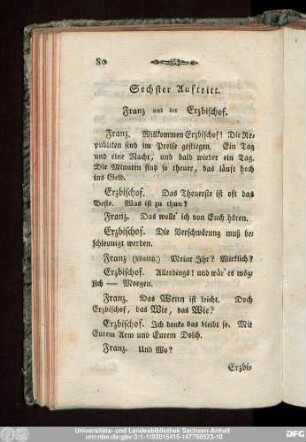 80
Sechster Auftritt.
Franz und der Erzbischof.
Franz. Willkommen Erzbischof! Die Re-
publiken sind im Preise gestiegen. Ein Tag
und eine Nacht, und bald wieder ein Tag.
Die Minuten sind so theuer, das läuft hoch
ins Geld.
Erzbischof. Das Theuerste ist oft das
Beste. Was ist zu thun?
Franz. Das wollt' ich von Euch hören.
Erzbischof. Die Verschwörung muß be-
schleunigt werden.
Franz Meint Ihr? Wirklich?
Erzbischof. Allerdings! und wär' es mög-
lich — Morgen.
Franz. Das Wenn ist leicht. Doch
Erzbischof, das Wie, das Wie?
Erzbischof. Ich denke das bleibt so. Mit
Eurem Arm und Eurem Dolch.
Franz. Und Wo?
Erzbi-
Universitäts- und Landesbibliothek Sachsen-Anhalt
urn:nbn:de:gbv:3:1-1192015415-147798523-10